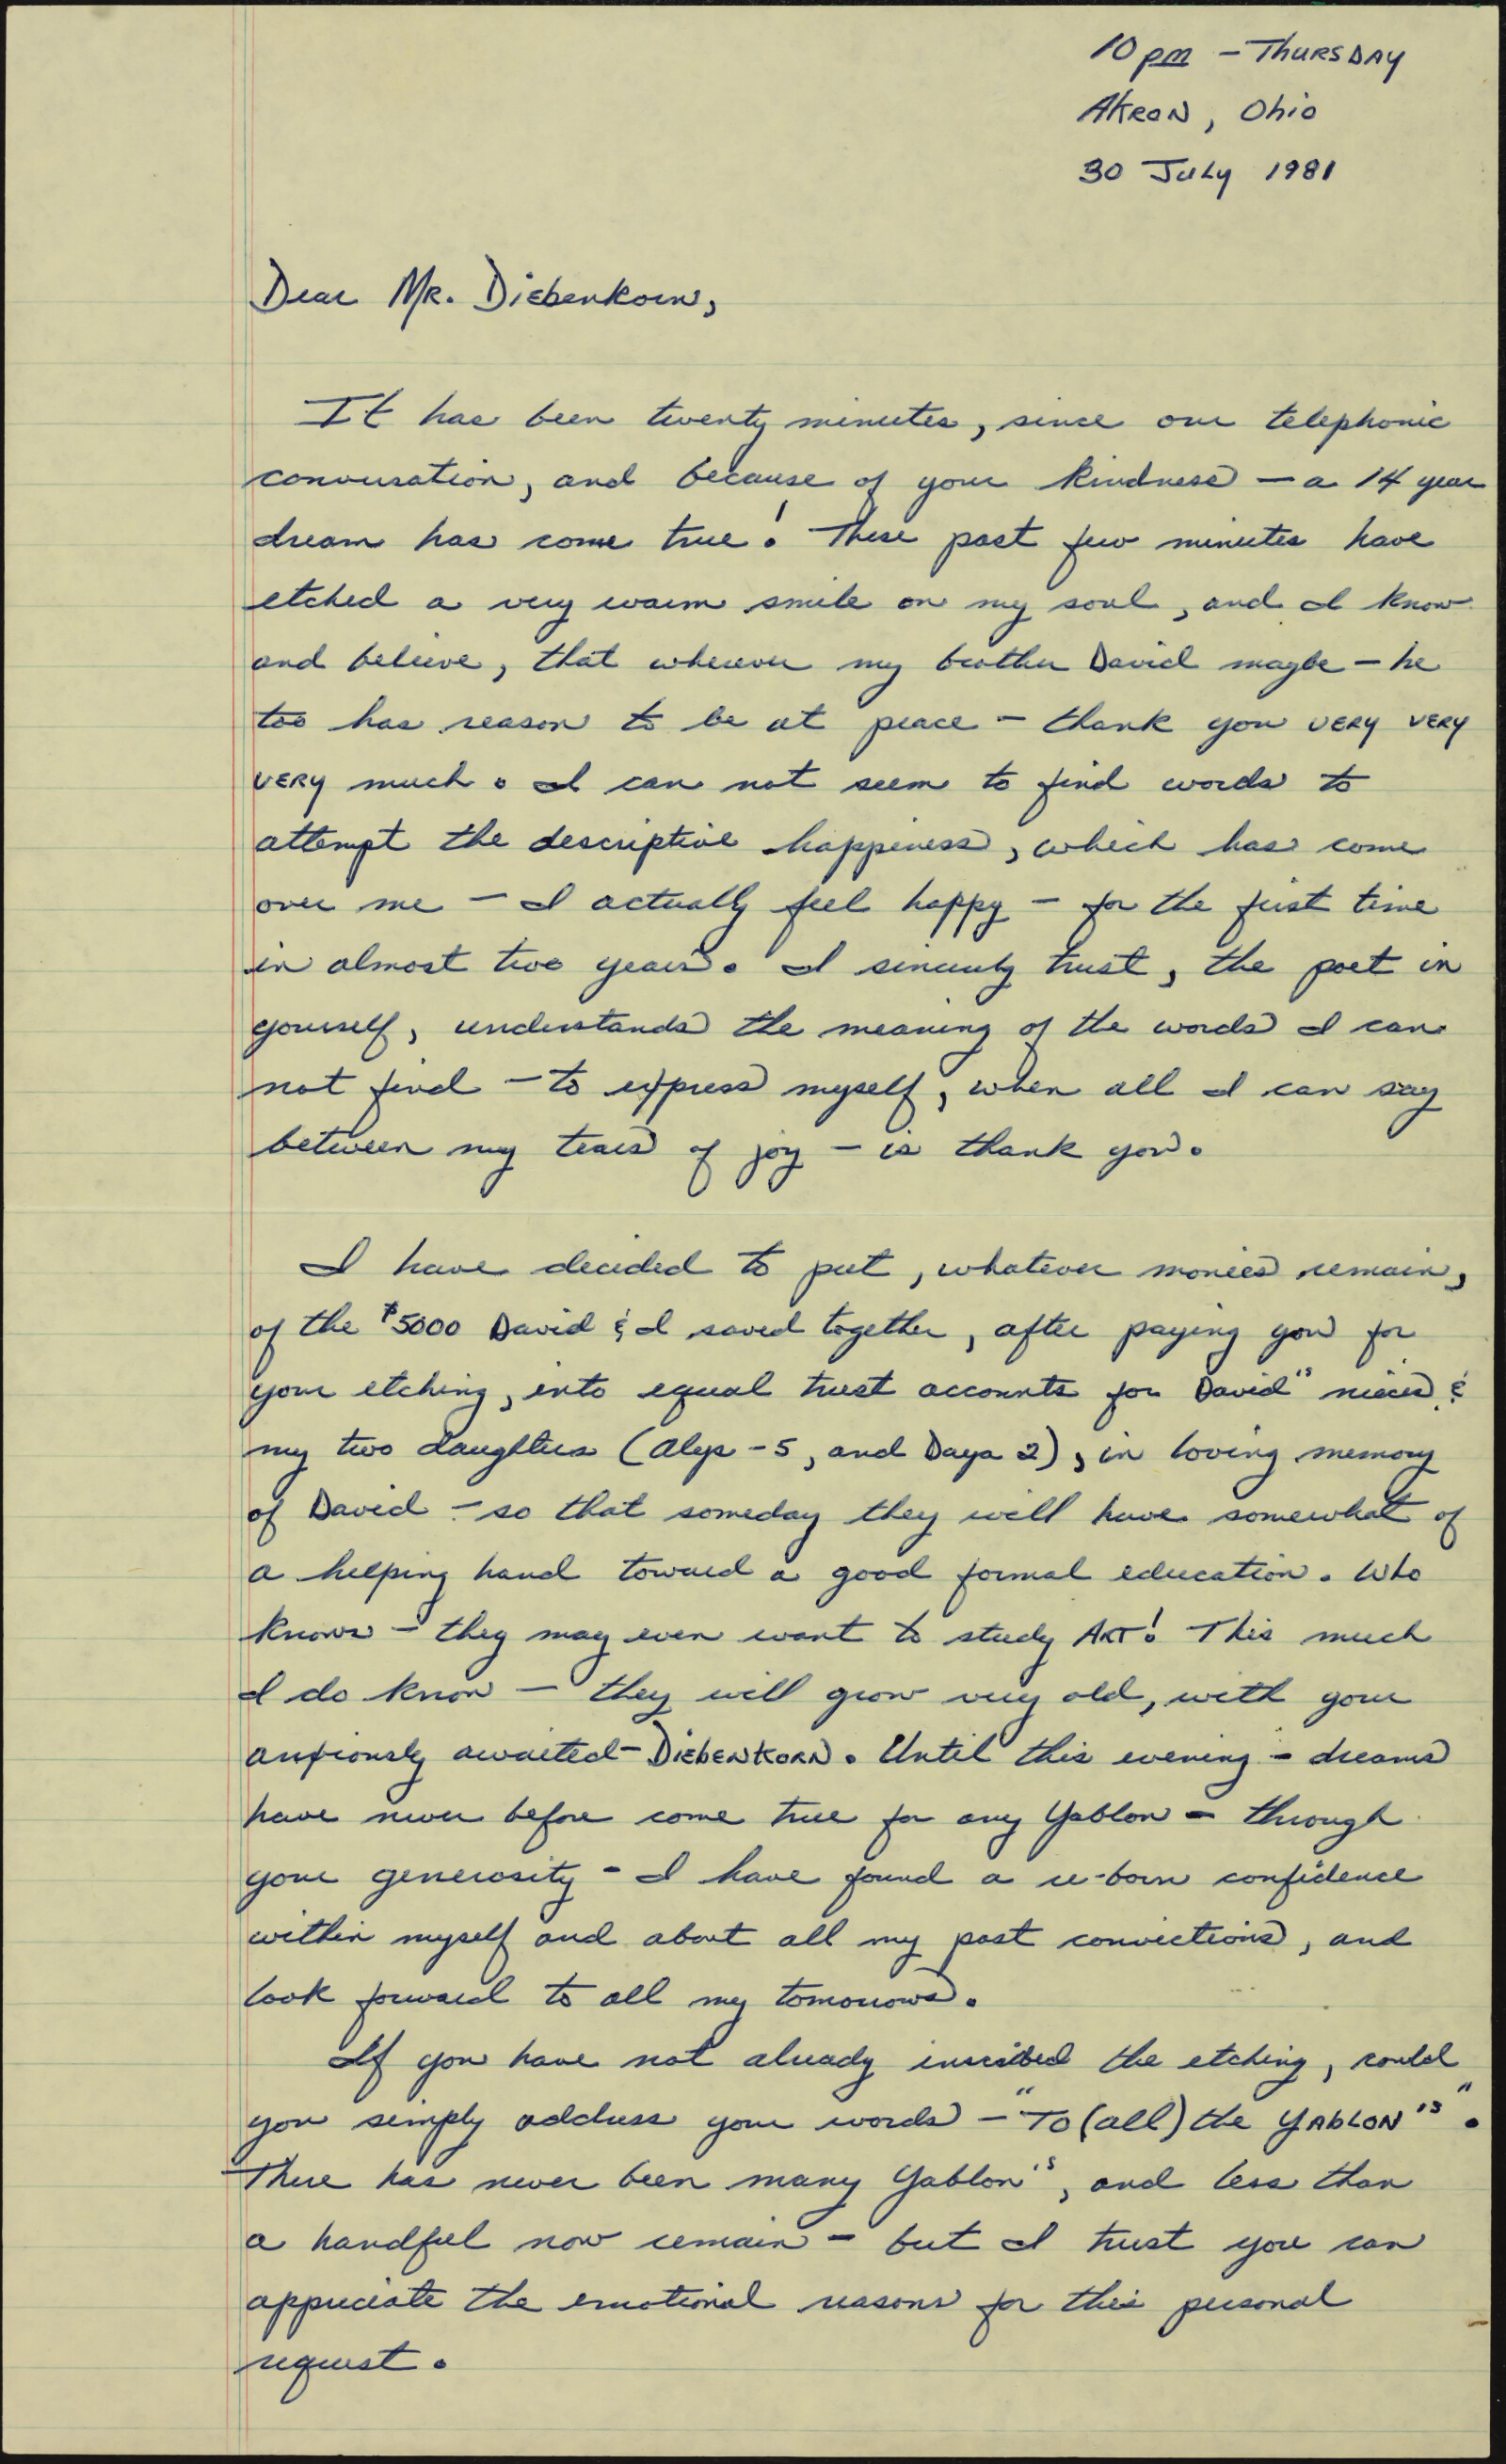 10 pm - Thursday
Akron, Ohio
30 July 1981
Dear Mr. Diebenkorn,
It has been twenty minutes, since our telephonic
conversation, and because of your kindness - a 14 year
dream has come true! These past few minutes have
etched a very warm smile on my soul, and I know
and believe, that wherever my brother David maybe - he
too has reason to be at peace - thank you VERY VERY
VERY much. I can not seem to find words to
attempt the descriptive happiness, which has come
over me - I actually feel happy - for the first time
in almost two years. I sincerely trust, the poet in
yourself, understands the meaning of the words I can
not find - to express myself, when all I can say
between my tears of joy - is thank you.
I have decided to put, whatever monies remain,
of the $5000 David & I saved together, after paying you for
your etching, into equal trust accounts for David's nieces &
my two daughters (Alys - 5, and Daya 2), in loving memory
of David - so that someday they will have somewhat of
a helping hand toward a good formal education. Who
knows - they may even want to study ART! This much
I do know - they will grow very old, with your
anxiously awaited - Diebenkorn. Until this evening - dreams
have never before come true for any Yablon - through
your generosity - I have found a re-born confidence
within myself and about all my past convictions, and
look forward to all my tomorrows.
If you have not already inscribed the etching, could
you simply address your words - "To (all) the Yablon's".
There has never been many Yablon's, and less than
a handful now remain - but I trust you can
appreciate the emotional reasons for this personal
request.